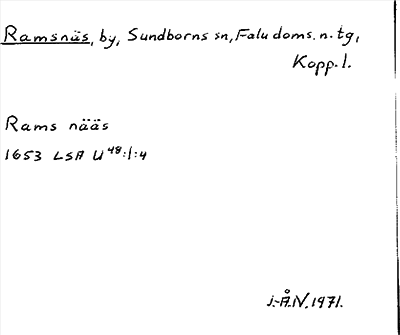 Ramsnäs, by, Sundborns sn, Falu doms. n. tg,
Kopp. l.
Rams nääs
1653 LSA U 48:1:4
J.-Å.N. 1971.